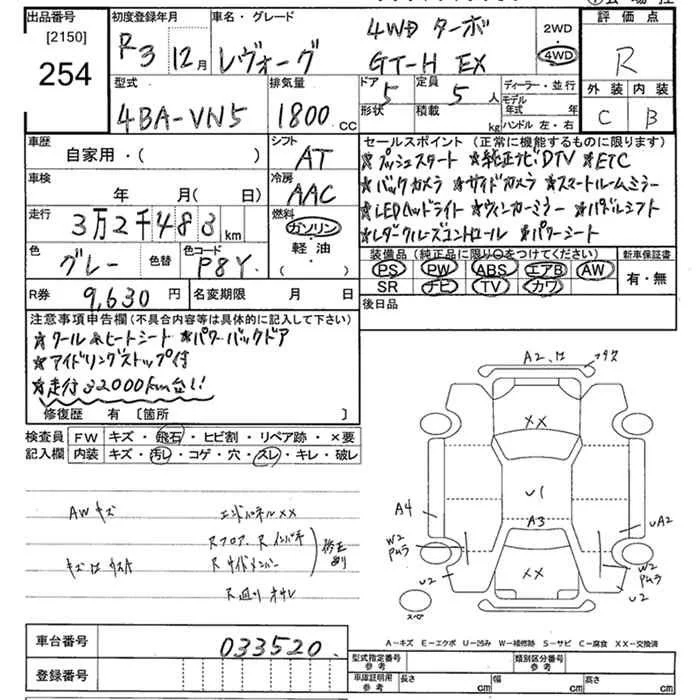 出品番号 初度登録年月 車名・グレード 評価点
[2150] R3 12月 レヴォーグ 4WD ターボ 2WD
254 GT-H EX 4WD R
型式 排気量 ドア 定員 ディーラー・並行 外装 内装
4BA-VN5 1800 CC 5 5 人 モデル年式 年 C B
形状 積載 kg ハンドル 左・右
車歴 シフト セールスポイント (正常に機能するものに限ります)
自家用・( ) AT ★プッシュスタート ★純正ナビDTV ★ETC
車検 冷房 ★バックカメラ ★サイドカメラ ★スマートルームミラー
年 月( 日) AAC ★LEDヘッドライト ★ウィンカーミラー ★パドルシフト
走行 燃料 ★レダークルーズコントロール ★パワーシート
3万2千483 km ガソリン
色 色替 色コード 軽・油 装備品(純正品に限り○をつけてください) 新車保証書
グレー P8Y ・( ) PS PW ABS エアB AW 有・無
R券 9,630 円 名変期限 月 日 SR ナビ TV カワ
後日品
注意事項申告欄(不具合内容等は具体的に記入して下さい)
★クール&ヒートシート ★パワーバックドア
★アイドリングストップ付
★走行32000km台!!
修復歴 有 〔箇所 〕
検査員 FW キズ・飛石・ヒビ割・リペア跡・×要
記入欄 内装 キズ・汚レ・コゲ・穴・スレ・キレ・破レ
AWキズ エンドパネルXX
Rフロア、Rインパネ
Rサイドメンバー 修正あり
A2
XX
U1
A4 A3 UA2
W2 W2
XX
U2 U2
スペア
A-キズ E-エクボ U-凹み W-補修跡 S-サビ C-腐食 XX-交換済
車台番号 033520
登録番号
型式指定番号 参考 類別区分番号 参考
車庫証明用 参考 長さ cm 幅 cm 高さ cm